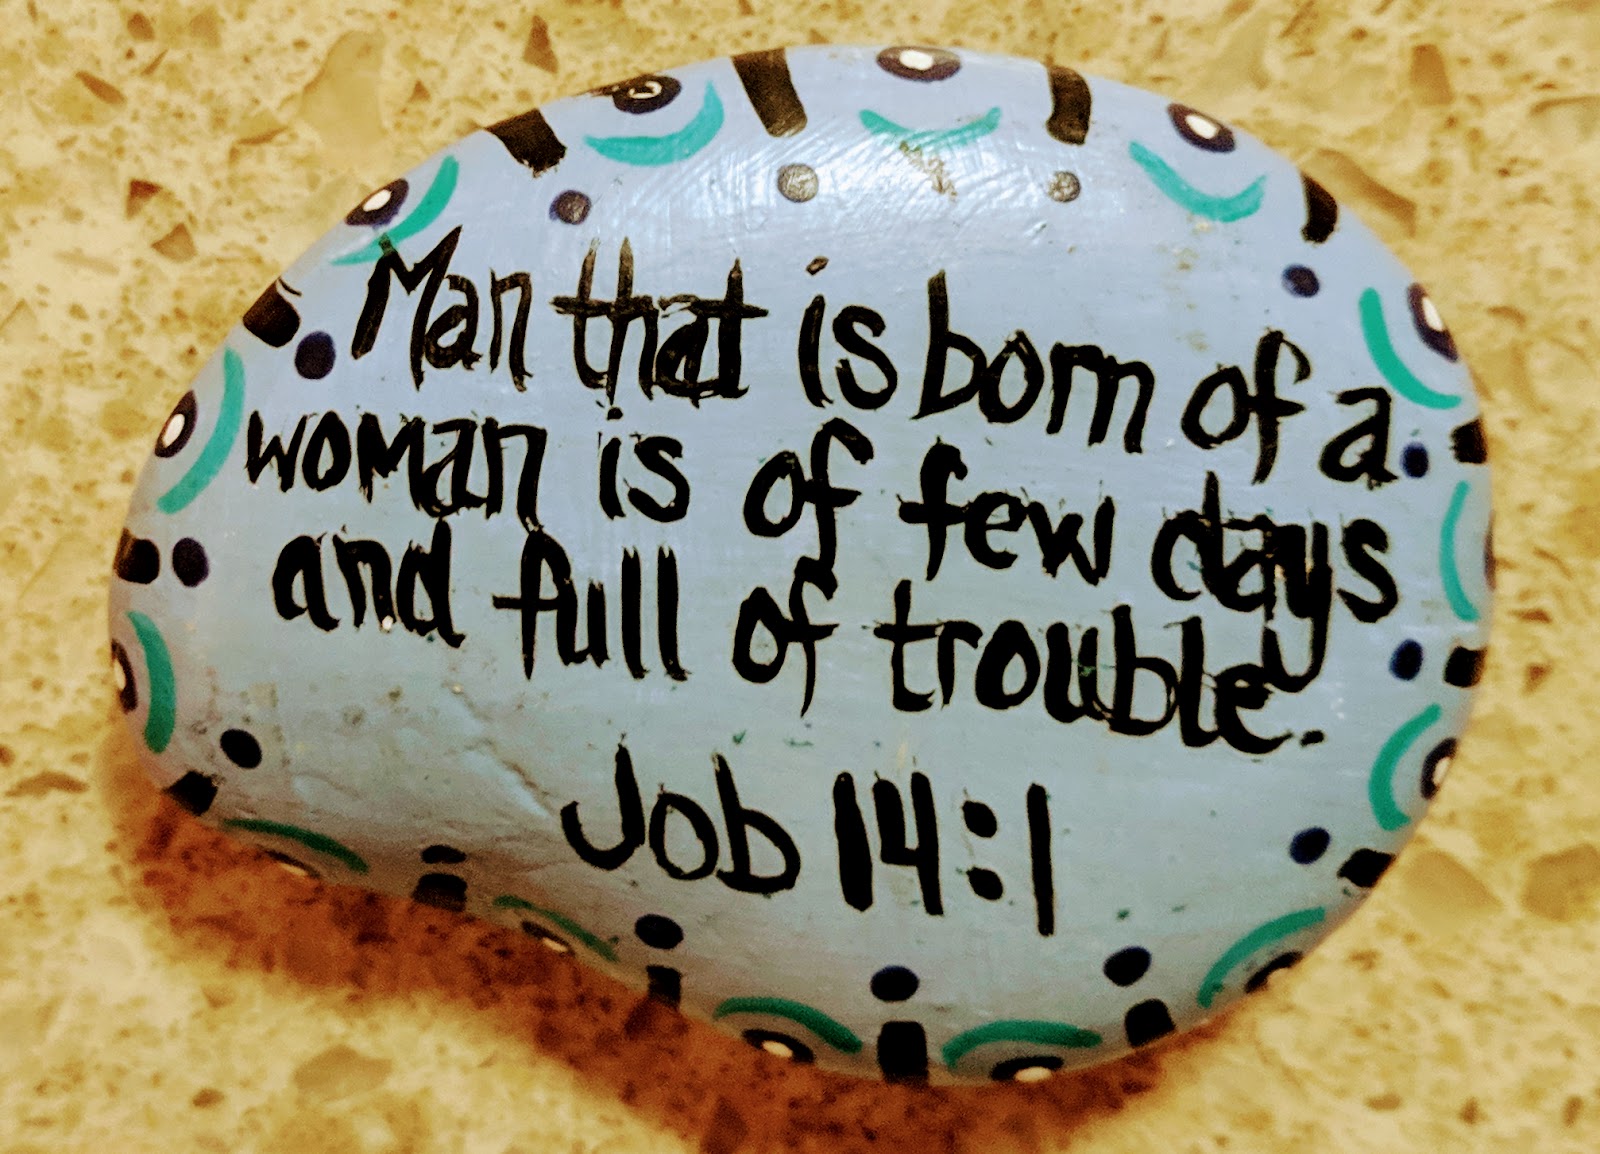 Man that is born of a
woman is of few days
and full of trouble.
Job 14:1